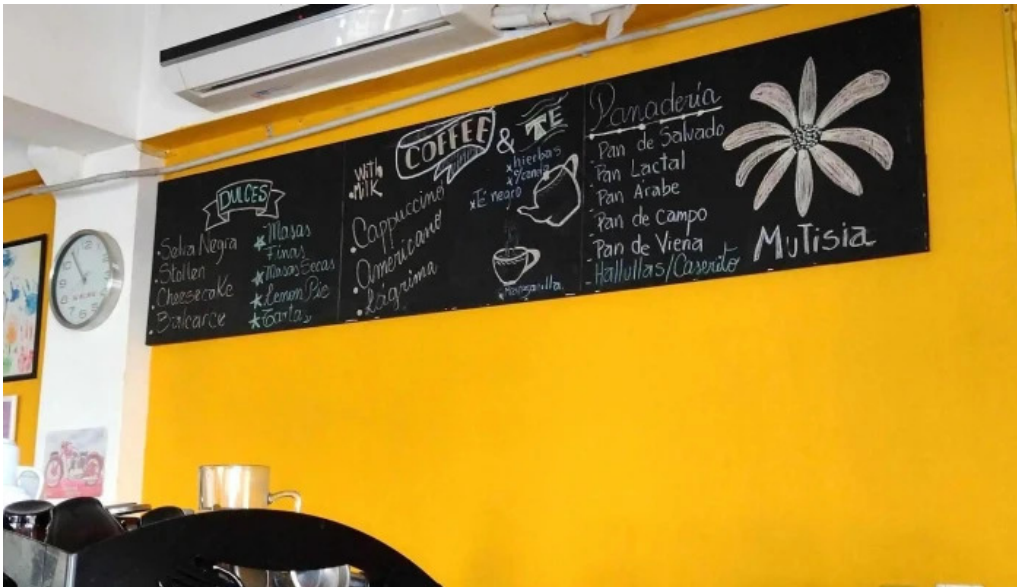 DULCES
Selva Negra
Stollen
Cheesecake
Balcarce
Masas
Finas
Masas Secas
Lemon Pie
Tartas
with
milk
COFFEE
&
TÉ
Cappuccino
Americano
Lágrima
hierbas
Té negro
Manzanilla
Panadería
Pan de Salvado
Pan Lactal
Pan Arabe
Pan de campo
Pan de Viena
Hallullas/Caserito
Mutisia